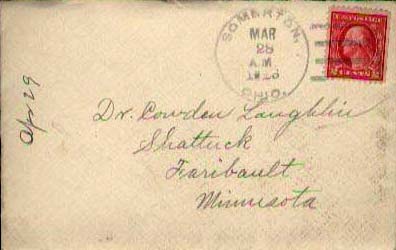 SOMERTON,
MAR
28
A.M.
OHIO.
U.S. POSTAGE
2 CENTS 2
Apr 29
Dr. Cowden Laughlin
Shattuck
Faribault
Minnesota